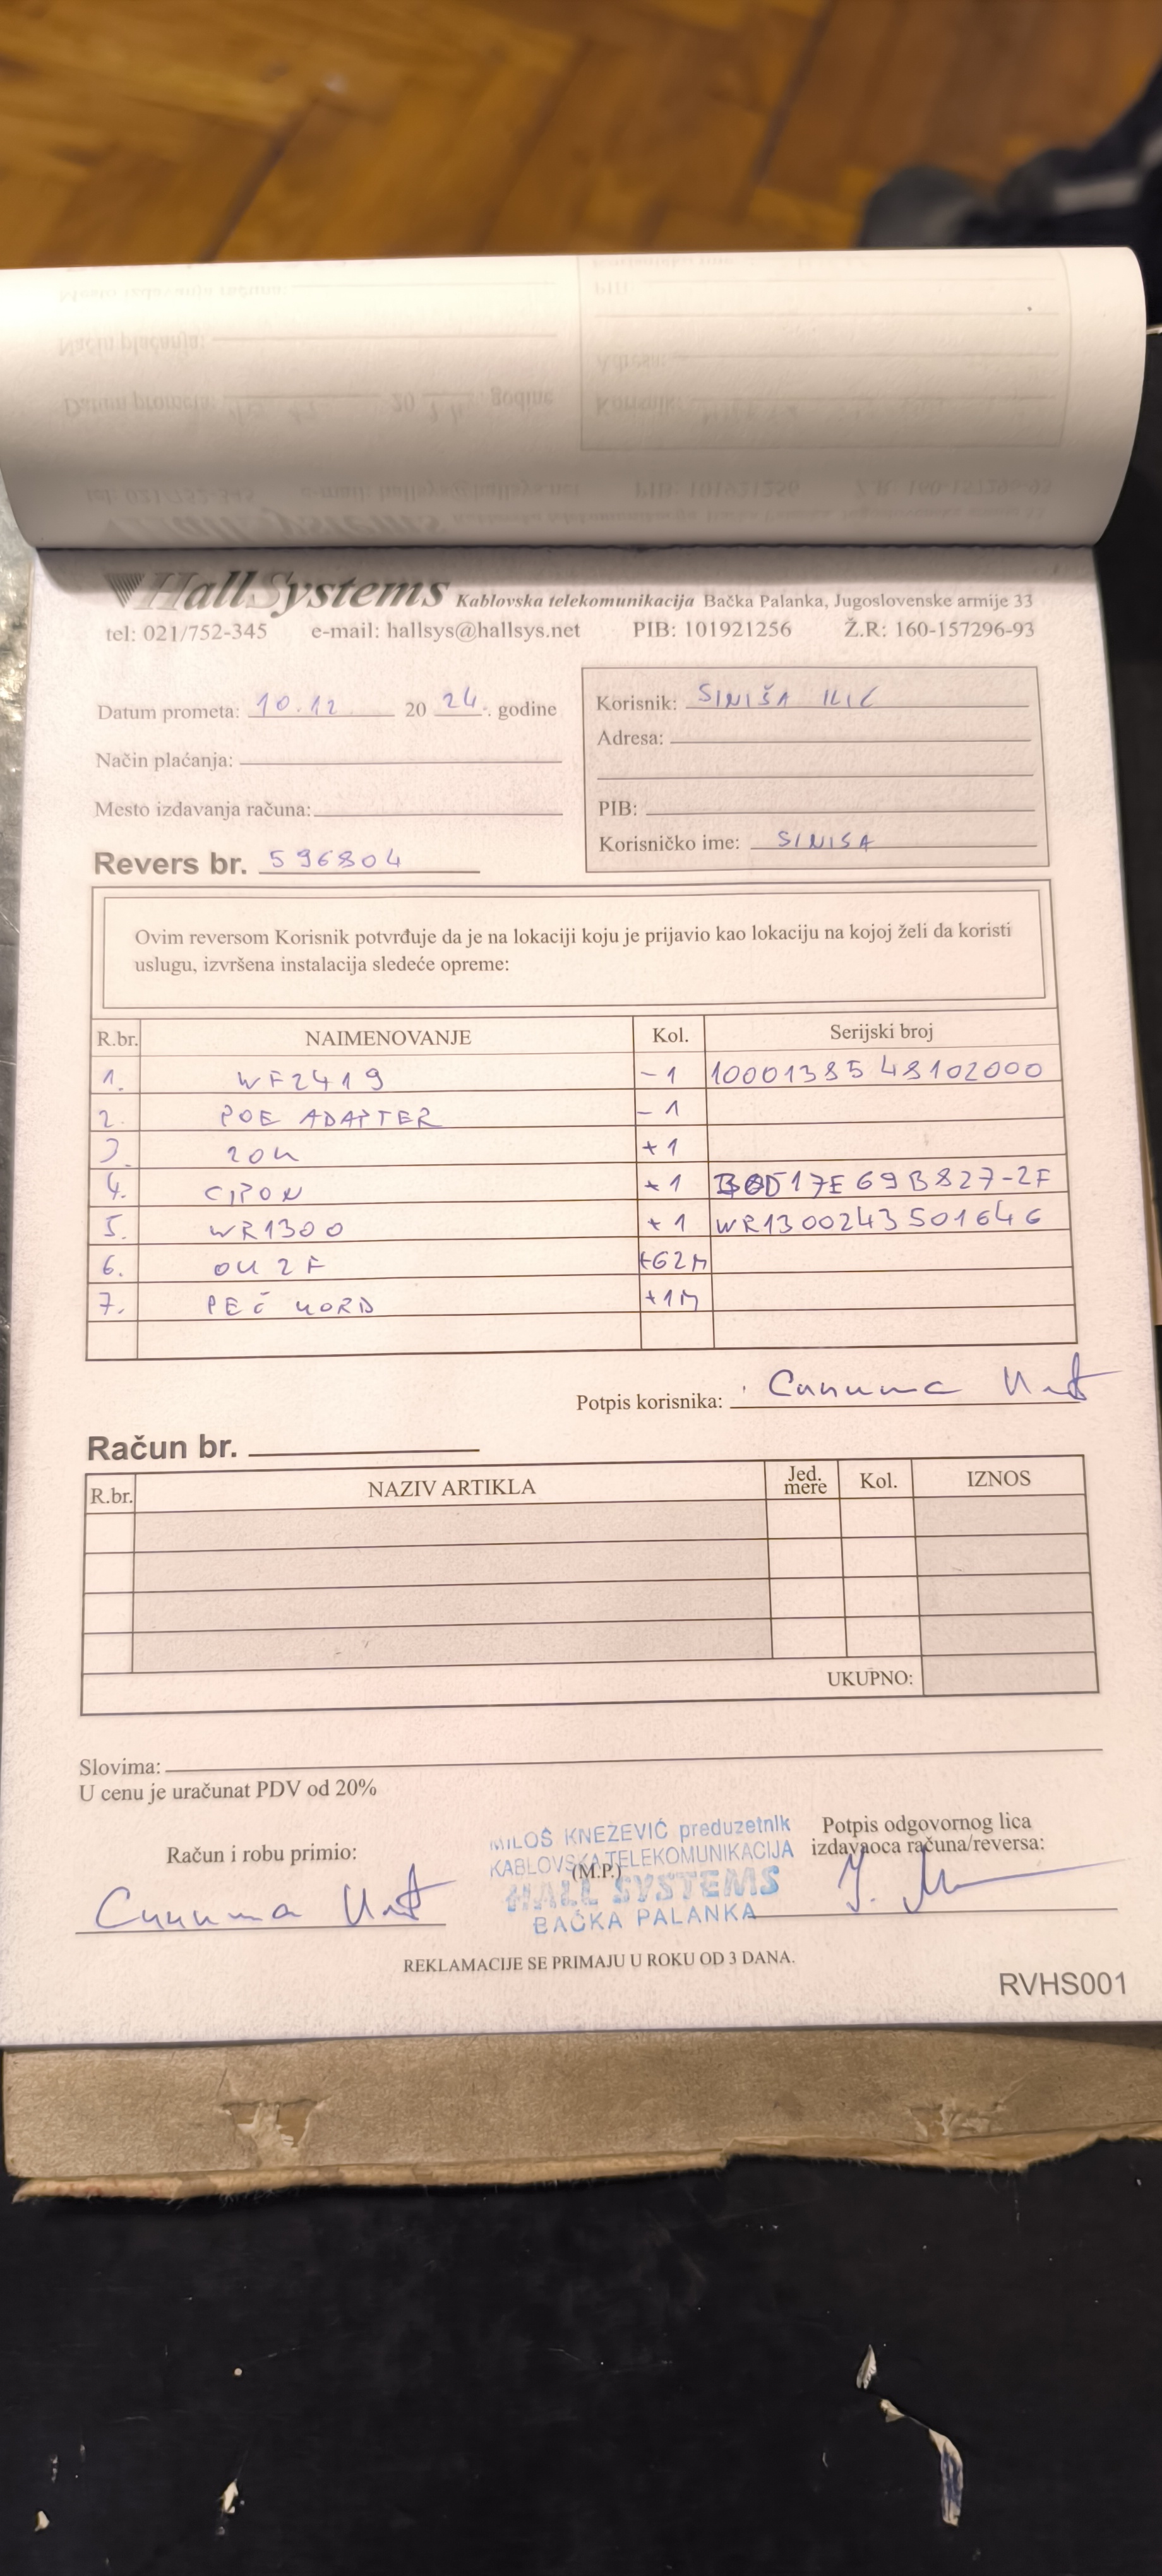 HallSystems Kablovska telekomunikacija Bačka Palanka, Jugoslovenske armije 33
tel: 021/752-345 e-mail: hallsys@hallsys.net PIB: 101921256 Ž.R: 160-157296-93
Datum prometa: 10.12 20 24. godine
Način plaćanja:
Mesto izdavanja računa:
Korisnik: SINIŠA ILIĆ
Adresa:
PIB:
Korisničko ime: SINISA
Revers br. 596804
Ovim reversom Korisnik potvrđuje da je na lokaciji koju je prijavio kao lokaciju na kojoj želi da koristi
uslugu, izvršena instalacija sledeće opreme:
R.br. NAIMENOVANJE Kol. Serijski broj
1. WF2419 -1 1000138548102000
2. POE ADAPTER -1
3. +1
4. GPON +1 17E69B827-2F
5. WR1300 +1 WR1300243501646
6. +62M
7. +1M
Potpis korisnika: Синиша Илић
Račun br.
R.br. NAZIV ARTIKLA Jed. mere Kol. IZNOS
UKUPNO:
Slovima:
U cenu je uračunat PDV od 20%
Račun i robu primio:
Синиша Илић
MILOŠ KNEŽEVIĆ preduzetnik
KABLOVSKA TELEKOMUNIKACIJA
(M.P.)
HALL SYSTEMS
BAČKA PALANKA
Potpis odgovornog lica
izdavaoca računa/reversa:
REKLAMACIJE SE PRIMAJU U ROKU OD 3 DANA.
RVHS001